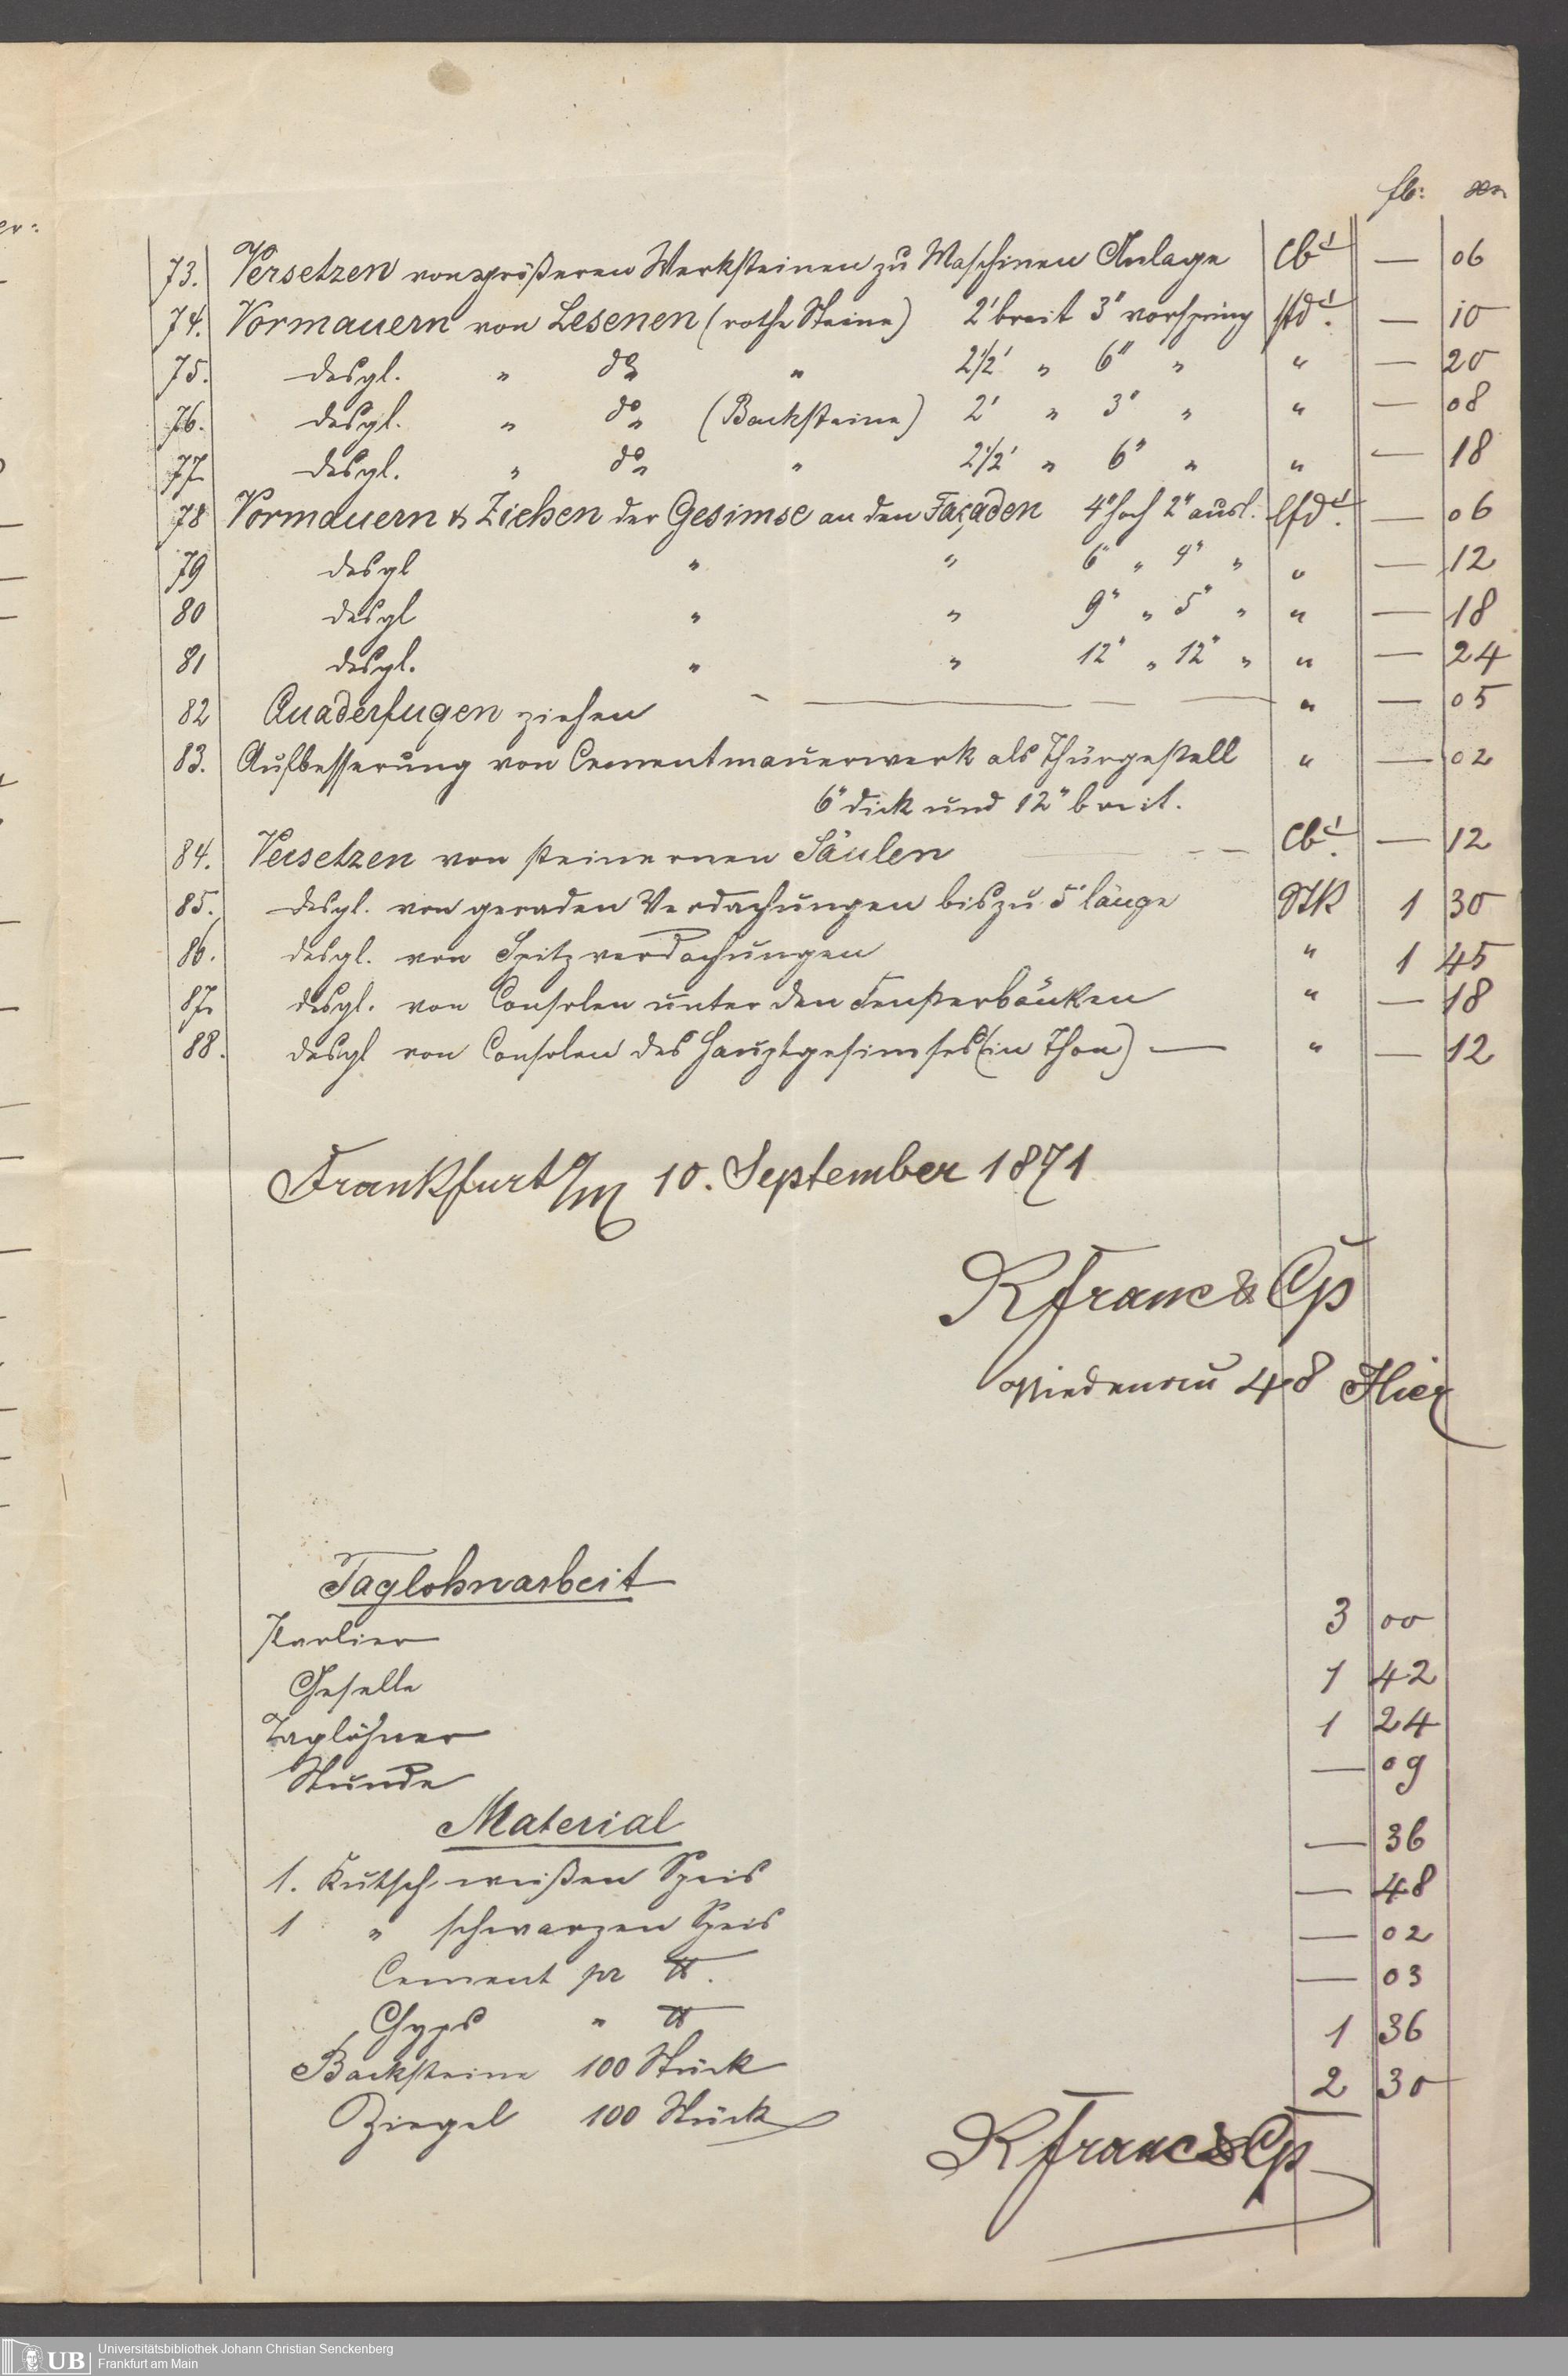 fl: xr
73. Versetzen von größeren Werksteinen zu Maschinen Anlage cb' — 06
74. Vormauern von Lesenen (rothe Steine) 2' breit 3" vorspring lfd'. — 10
75. desgl. " do " 2 1/2' " 6" " " — 20
76. desgl. " do (Backsteine) 2' " 3" " " — 08
77. desgl. " do " 2 1/2' " 6" " " — 18
78 Vormauern & Ziehen der Gesimse an den Façaden 4" hoch 2" ausl. lfd'. — 06
79 desgl " " 6" " 4" " " — 12
80 desgl " " 9" " 5" " " — 18
81 desgl. " " 12" " 12" " " — 24
82 Quaderfugen ziehen — " — 05
83. Aufbesserung von Cementmauerwerk als Thürgestell " — 02
6" dick und 12" breit.
84. Versetzen von steinernen Säulen — cb'. — 12
85. desgl. von geraden Verdachungen bis zu 5' länge Stk 1 30
86. desgl. von Spitzverdachungen " 1 45
87. desgl. von Consolen unter den Fensterbänken " — 18
88. desgl von Consolen des Hauptgesimses (in Thon) — " — 12
Frankfurt a/M 10. September 1871
K Franc & Cp
Niedenau 48 Hier
Taglohnarbeit
Parlier 3 00
Geselle 1 42
Taglöhner 1 24
Stunde — 09
Material
1. Kutsch weißen Speis — 36
1 " schwarzen Speis — 48
Cement pr ℔. — 02
Gyps " ℔ — 03
Backsteine 100 Stück 1 36
Ziegel 100 Stück 2 30
K Franc & Cp
UB Universitätsbibliothek Johann Christian Senckenberg
Frankfurt am Main